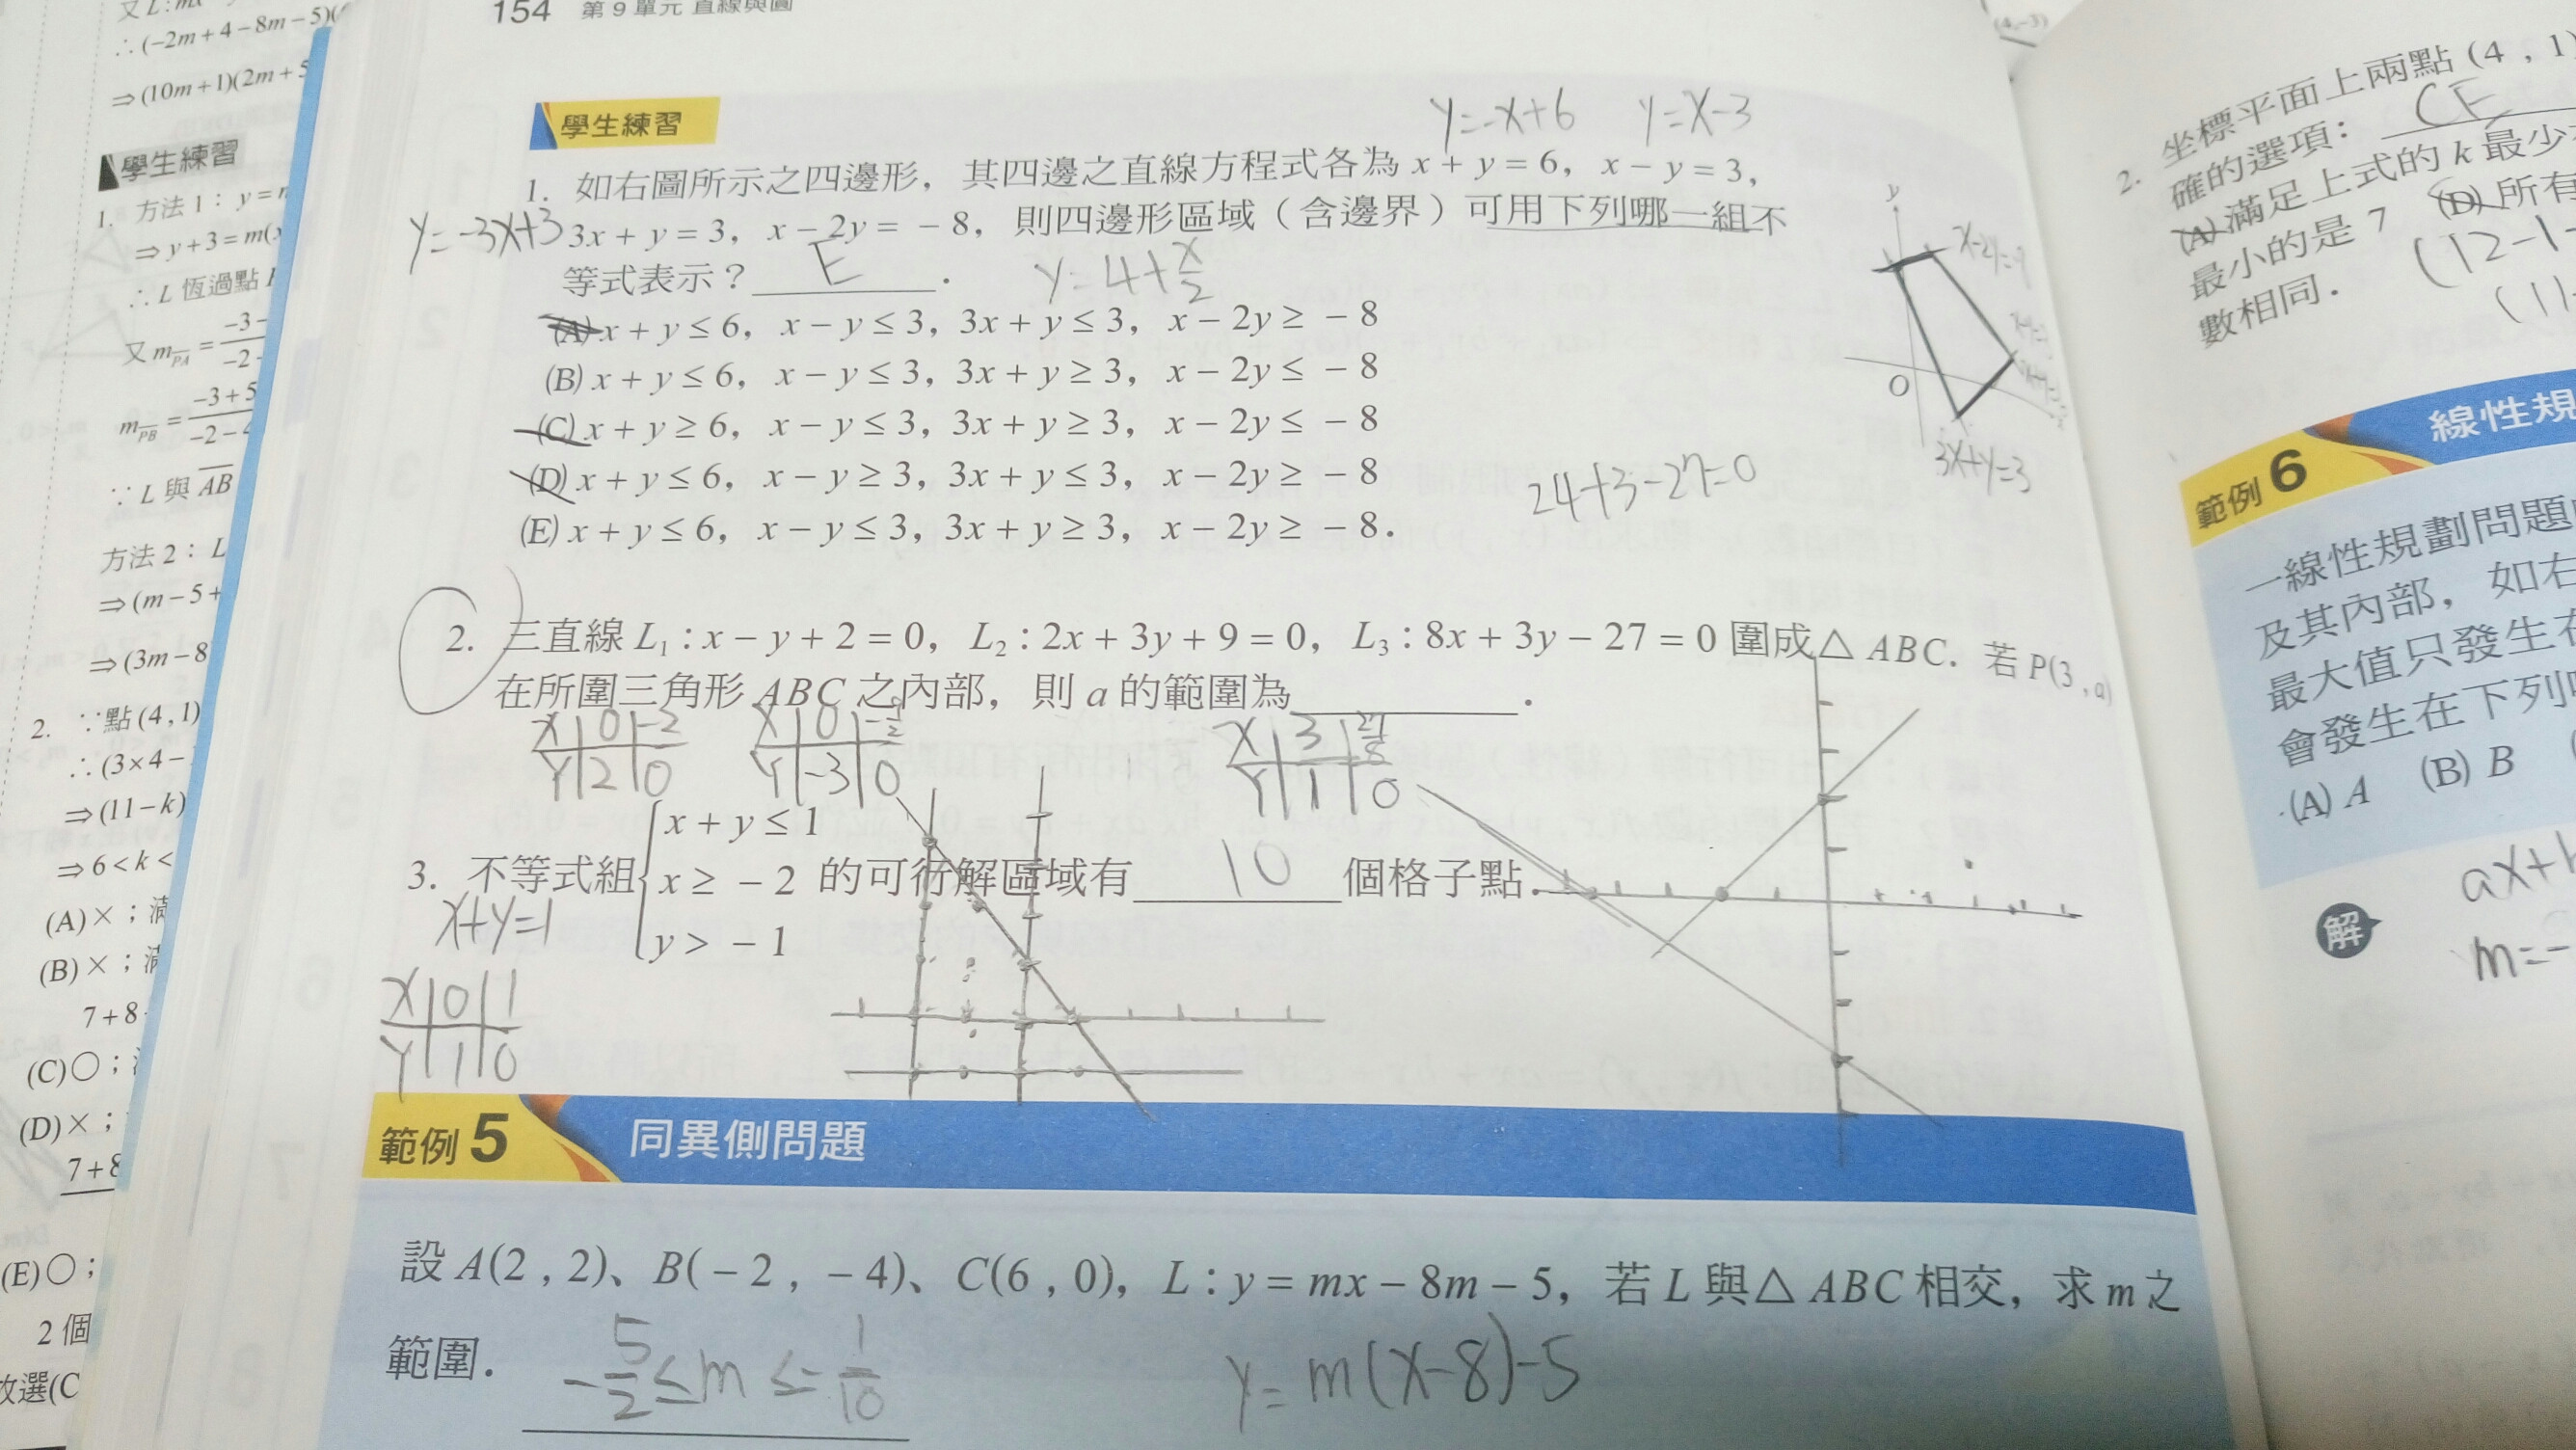 又 L : mx
∴ (−2m + 4 − 8m − 5)(
⇒ (10m + 1)(2m + 5
學生練習
1. 方法 1：y =
⇒ y + 3 = m(
∴ L 恆過點
又 m_PA = −3− / −2−
m_PB = −3+5 / −2−4
∵ L 與 AB
方法 2：L
⇒ (m − 5 +
⇒ (3m − 8
2. ∵點 (4 , 1)
∴ (3×4 −
⇒ (11 − k)
⇒ 6 < k <
(A) ×；滿
(B) ×；滿
7 + 8
(C) ○；
(D) ×；
7 + 8
(E) ○；
2 個
故選(C
154 第 9 單元 直線與圓
學生練習
y=-x+6 y=x-3
1. 如右圖所示之四邊形，其四邊之直線方程式各為 x + y = 6，x − y = 3，
y=-3x+3
3x + y = 3，x − 2y = − 8，則四邊形區域（含邊界）可用下列哪一組不
等式表示？ E ．
y=4+x/2
(A) x + y ≤ 6，x − y ≤ 3，3x + y ≤ 3，x − 2y ≥ − 8
(B) x + y ≤ 6，x − y ≤ 3，3x + y ≥ 3，x − 2y ≤ − 8
(C) x + y ≥ 6，x − y ≤ 3，3x + y ≥ 3，x − 2y ≤ − 8
(D) x + y ≤ 6，x − y ≥ 3，3x + y ≤ 3，x − 2y ≥ − 8
(E) x + y ≤ 6，x − y ≤ 3，3x + y ≥ 3，x − 2y ≥ − 8．
y
O
3x+y=3
24+3-27=0
2. 三直線 L₁ : x − y + 2 = 0，L₂ : 2x + 3y + 9 = 0，L₃ : 8x + 3y − 27 = 0 圍成△ABC．若 P(3 , a)
在所圍三角形 ABC 之內部，則 a 的範圍為 ．
x 0 -2
y 2 0
x 0 -9/2
y -3 0
x 3 27/8
y 1 0
3. 不等式組 { x + y ≤ 1
x ≥ − 2 的可行解區域有 10 個格子點．
y > − 1
x+y=1
x 0 1
y 1 0
範例 5 同異側問題
設 A(2 , 2)、B(− 2 , − 4)、C(6 , 0)，L : y = mx − 8m − 5，若 L 與△ABC 相交，求 m 之
範圍．
-5/2 ≤ m ≤ -1/10
y = m(x-8)-5
(4,-3)
2. 坐標平面上兩點 (4 , 1)
確的選項： CE
(A) 滿足上式的 k 最少
最小的是 7 (D) 所有
數相同．
(12-1-
(11-
範例 6 線性規
一線性規劃問題
及其內部，如右
最大值只發生在
會發生在下列
(A) A (B) B
解
ax+
m=-